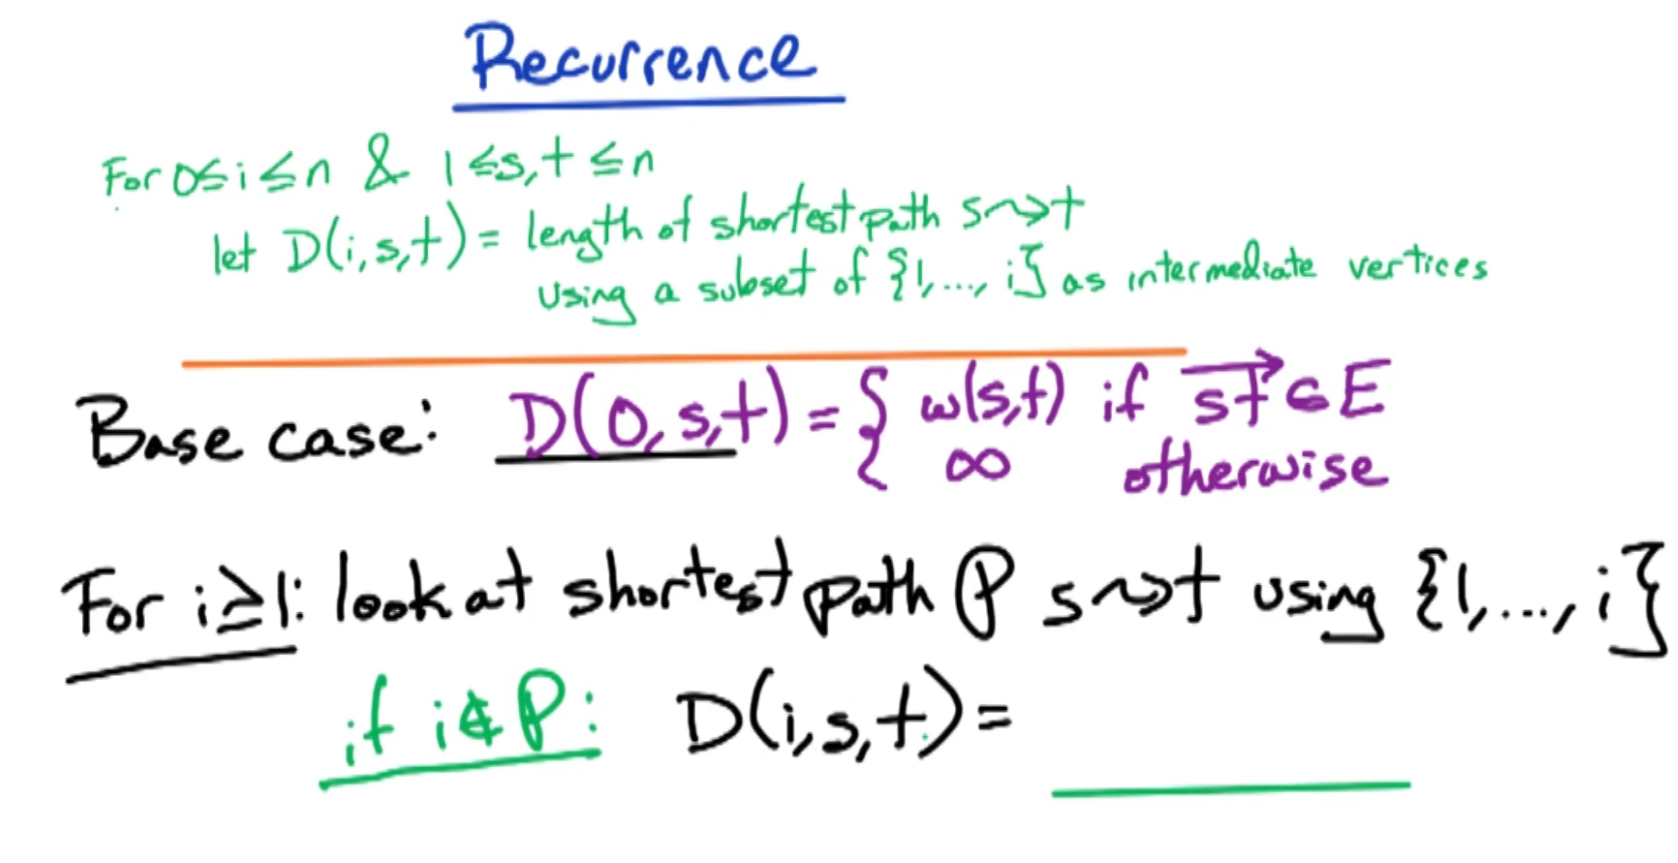 Recurrence
For 0≤i≤n & 1≤s,t≤n
let D(i,s,t) = length of shortest path s⤳t
using a subset of {1,...,i} as intermediate vertices
Base case: D(0,s,t) = { w(s,t) if st→ ∈ E
∞ otherwise
For i≥1: look at shortest path P s⤳t using {1,...,i}
if i∉P: D(i,s,t) =